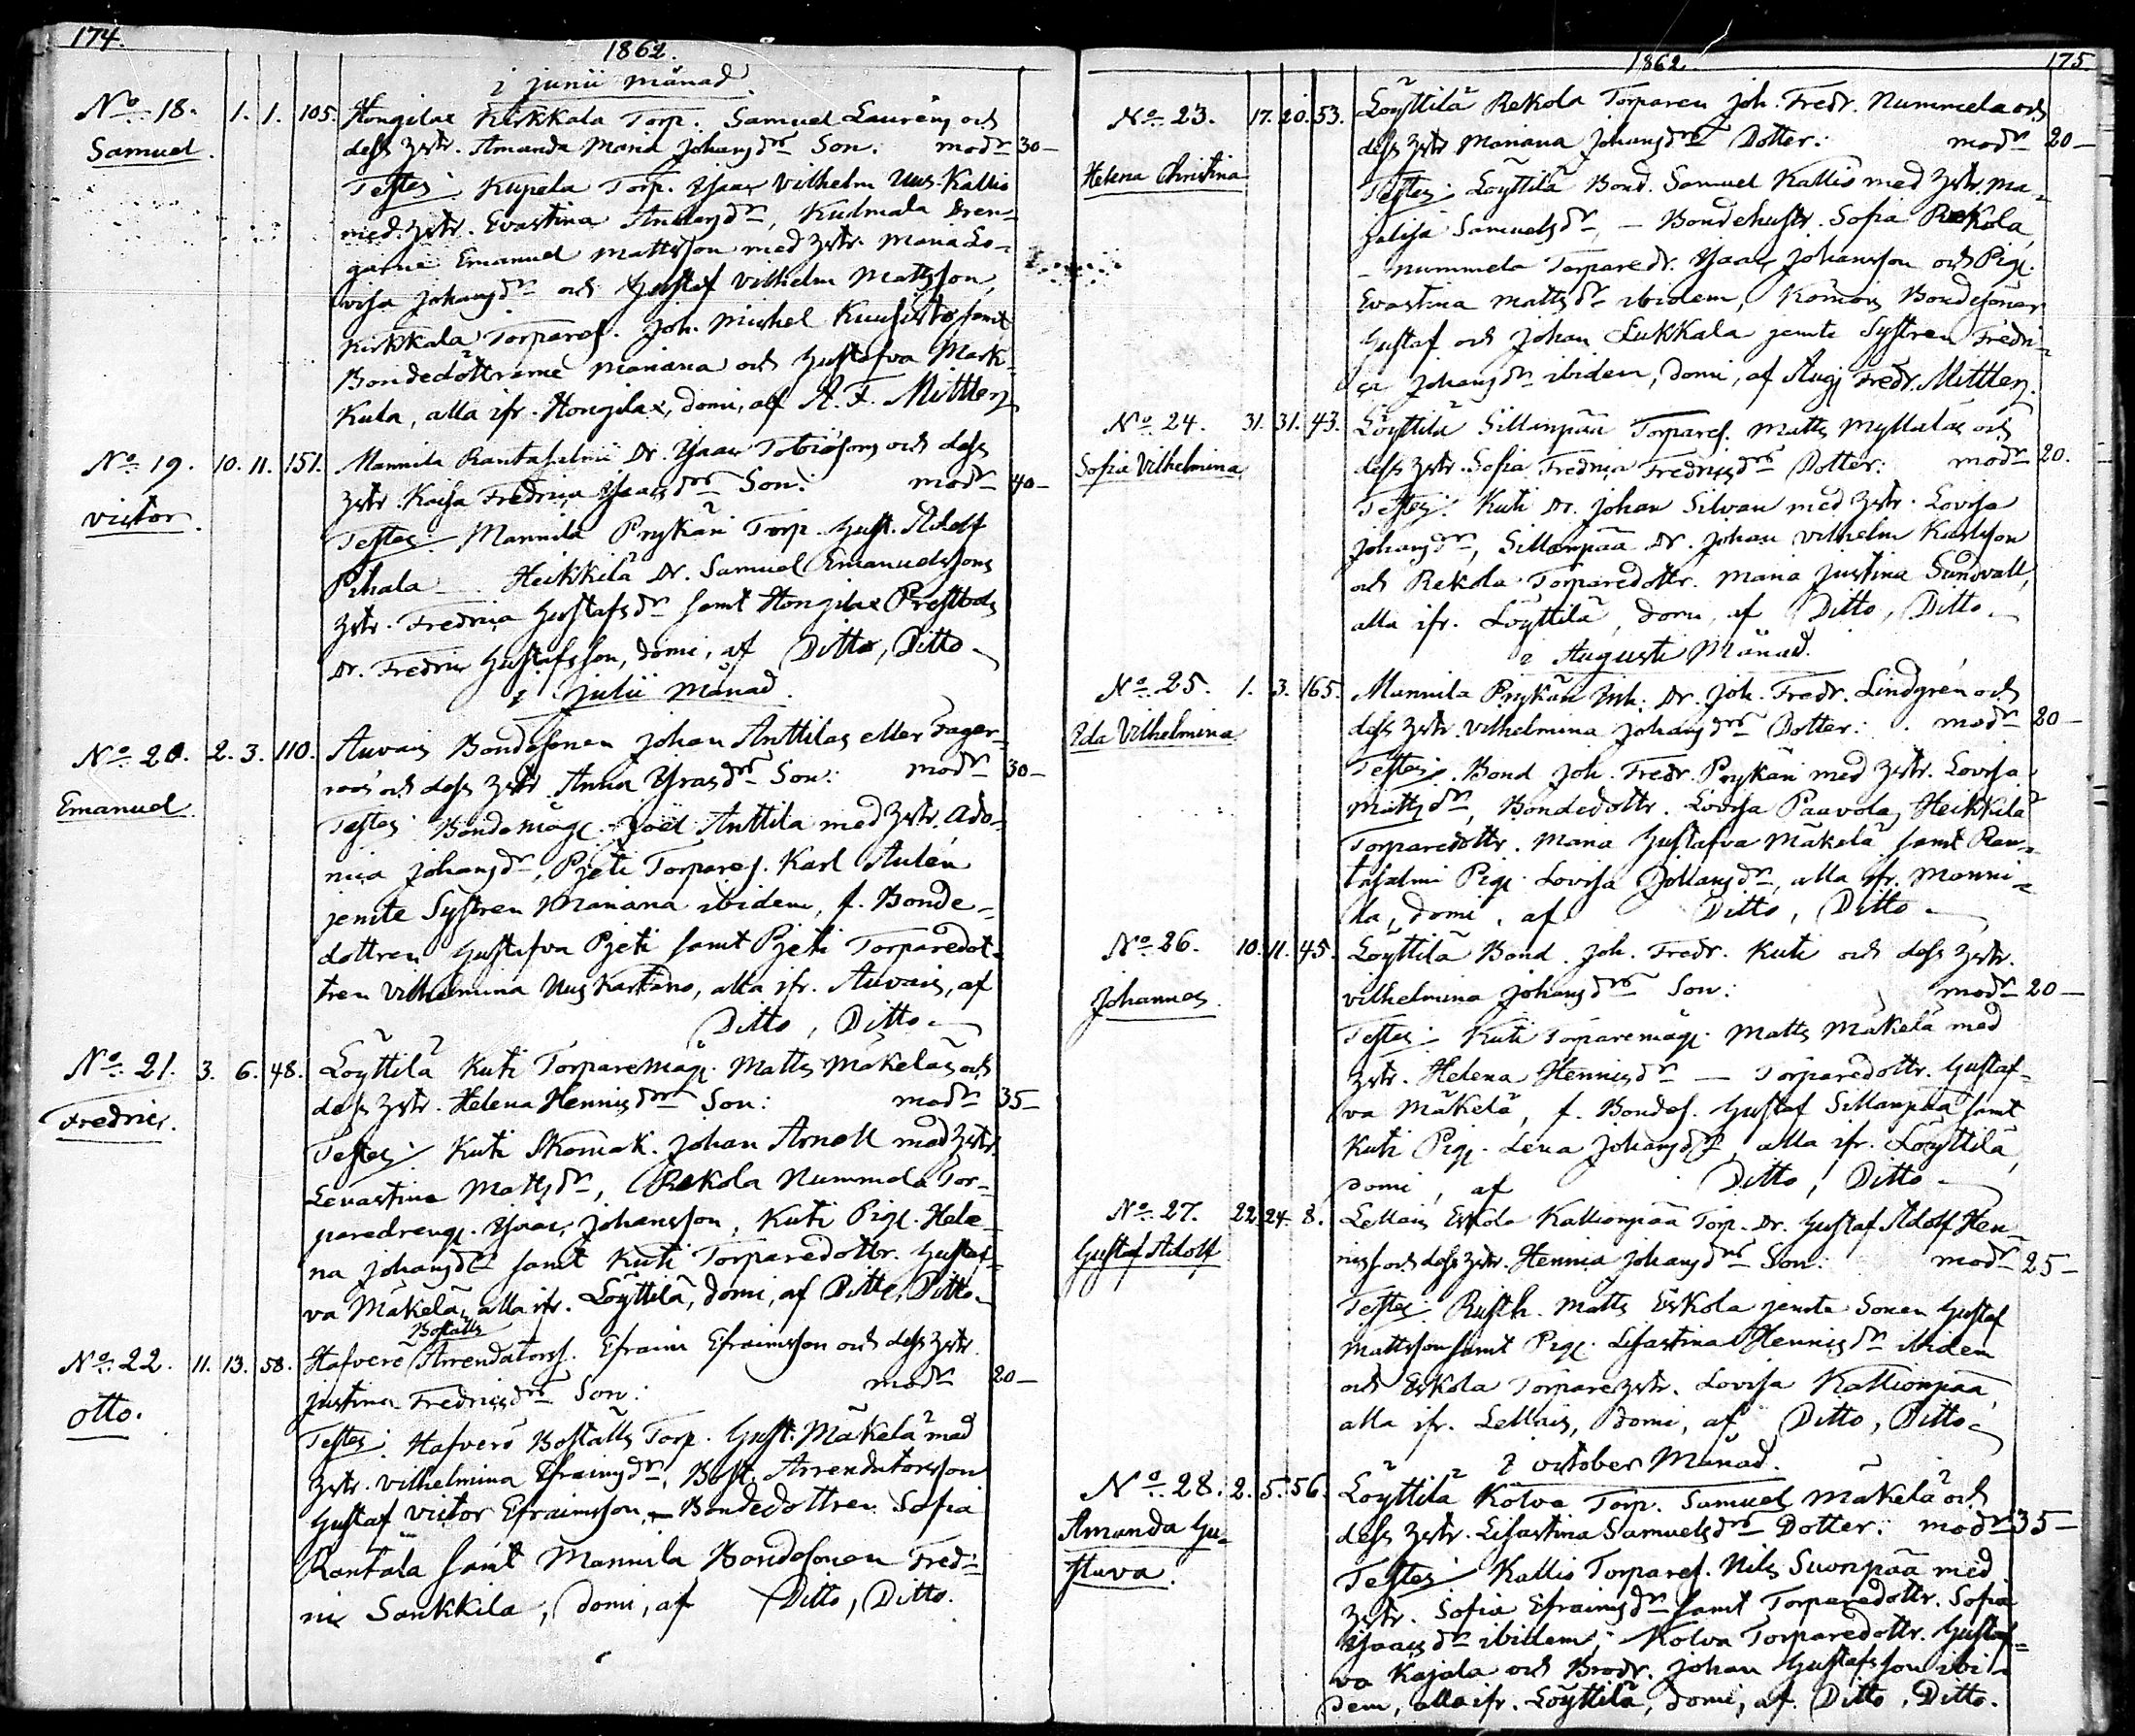 174.
1862.
i junii månad.
No. 18. 1. 1. 105. Hongilax Kirkkala Torp. Samuel Lauréns och
Samuel. dess hstr. Amanda Maria Johansdrs Son. modr 30—
Testes: Kupela Torp. Isaac Vilhelm Uus-Kallio
med hstr. Evastina Andersdr, Kudmala Dren-
garne Emanuel Mattsson med hstr. Maria Lo-
visa Johansdr och Gustaf Vilhelm Mattsson,
Kirkkala Torpares. Joh. Michel Kuusisto samt
Bondedöttrarne Mariana och Gustafva Mark-
kula, alla ifr. Hongilax, domi, af A. F. Mittler,
No. 19. 10. 11. 151. Mannila Rantasalmi Dr. Isaac Tobiæsons och dess
Victor. hstr. Kaisa Fredrica Isaacsdrs Son: modr 40—
Testes: Mannila Prykäri Torp. Gust. Adolf
Pihala — Heikkilä Dr. Samuel Emanuelssons
hstr. Fredrica Gustafsdr samt Hongilax Prestbols
Dr. Fredric Gustafsson, domi, af Ditto, Ditto —
i julii månad.
No. 20. 2. 3. 110. Auvais Bondesonen Johan Anttilas eller Fager-
Emanuel. roos och dess hstr. Anna Yrasdrs Son: modr 30—
Testes: Bondemåg. Joel Anttila med hstr. Ado-
nica Johansdr, Pjeti Torpares. Karl Aulén
jemte Systren Mariana ibidem, f. Bonde-
dottren Gustafva Pjeti samt Pjeti Torparedot-
tren Vilhelmina Uus Kartano, alla ifr. Auvais, af
Ditto, Ditto —
No. 21. 3. 6. 48. Löyttilä Kuti Torparemåg. Matts Mäkeläs och
Fredric. dess hstr. Helena Henricsdrs Son: modr 35—
Testes: Kuti Skomak. Johan Arnell med hstr.
Lenastina Mattsdr, Rekola Nummela Tor-
paredreng. Isaac Johansson, Kuti Pig. Hele-
na Johansdr samt Kuti Torparedottr. Gustaf-
va Mäkelä, alla ifr. Löyttilä, domi, af Ditto, Ditto —
Boställs
No. 22. 11. 13. 58. Hafverö Arrendators. Efraim Efraimsson och dess hstr.
Otto. Justina Fredricsdrs Son: modr 20—
Testes: Hafverö Boställs Torp. Gust. Mäkelä med
hstr. Vilhelmina Efraimsdr, Bost. Arrendatorsson
Gustaf Victor Efraimsson, — Bondedottren Sofia
Rantala samt Mannila Bondesonen Fred-
ric Sankkila, domi, af Ditto, Ditto.
1862.
175.
No. 23. 17. 20. 53. Löyttilä Rekola Torparen Joh. Fredr. Nummela och
Helena Christina dess hstr Mariana Johansdrs Dotter: modr 20—
Testes: Löyttilä Bond. Samuel Kallio med hstr. Ma-
jalisa Samuelsdr, — Bondehustr. Sofia Rekola,
— Nummela Torparedr. Isaac Johansson och Pig.
Evastina Mattsdr ibidem, Kömöis Bondesöner
Gustaf och Johan Lukkala jemte Systren Fredri-
ca Johansdr ibidem, domi, af Aug. Fredr. Mittler,
No. 24. 31. 31. 43. Löyttilä Sillanpää Torpares. Matts Myllaläs och
Sofia Vilhelmina dess hstr. Sofia Fredrica Fredricsdrs Dotter: modr 20.
Testes: Kuti Dr. Johan Silvan med hstr. Lovisa
Johansdr, Sillanpää Dr. Johan Vilhelm Karlsson
och Rekola Torparedottr. Maria Justina Sundvall,
alla ifr. Löyttilä, domi, af Ditto, Ditto —
i Augusti Månad.
No. 25. 1. 3. 165. Mannila Prykäri Inh. Dr. Joh. Fredr. Lindgrén och
Ida Vilhelmina dess hstr. Vilhelmina Johansdrs Dotter: modr 20—
Testes: Bond Joh. Fredr. Prykäri med hstr. Lovisa
Mattsdr, Bondedottr. Lovisa Paavola, Heikkilä
Torparedottr. Maria Gustafva Mäkelä samt Ran-
tasalmi Pig. Lovisa Johansdr, alla ifr. Manni-
la, domi, af Ditto, Ditto —
No. 26. 10. 11. 45. Löyttilä Bond. Joh. Fredr. Kuti och dess hstr.
Johannes. Vilhelmina Johansdrs Son: modr 20—
Testes: Kuti Torparemåg. Matts Mäkelä med
hstr. Helena Henricsdr — Torparedottr. Gustaf-
va Mäkelä, f. Bondes. Gustaf Sillanpää samt
Kuti Pig. Lena Johansdr, alla ifr. Löyttilä,
domi, af Ditto, Ditto —
No. 27. 22. 24. 8. Lellais Eskola Kallionpää Torp. Dr. Gustaf Adolf Hen-
Gustaf Adolf rics. och dess hstr. Henrica Johansdrs Son: modr 25—
Testes: Rusth. Matts Eskola jemte Sonen Gustaf
Mattsson samt Pig. Lisastina Henricsdr ibidem
och Eskola Torparehstr. Lovisa Kallionpää,
alla ifr. Lellais, domi, af Ditto, Ditto —
i October Månad.
No. 28. 2. 5. 56. Löyttilä Kolva Torp. Samuel Mäkelä och
Amanda Gu- dess hstr. Lisastina Samuelsdrs Dotter: modr 35—
stava. Testes: Kallio Torpares. Nils Suonpää med
hstr. Sofia Efraimsdr samt Torparedottr. Sofia
Isaacsdr ibidem, Kolva Torparedottr. Gustaf-
va Kajala och Brodr. Johan Gustafsson ibi-
dem, alla ifr. Löyttilä, domi, af Ditto, Ditto.